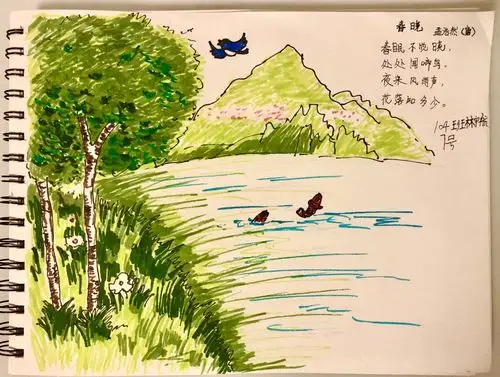 春晓 孟浩然（唐）
春眠不觉晓，
处处闻啼鸟。
夜来风雨声，
花落知多少。
104班林
1号